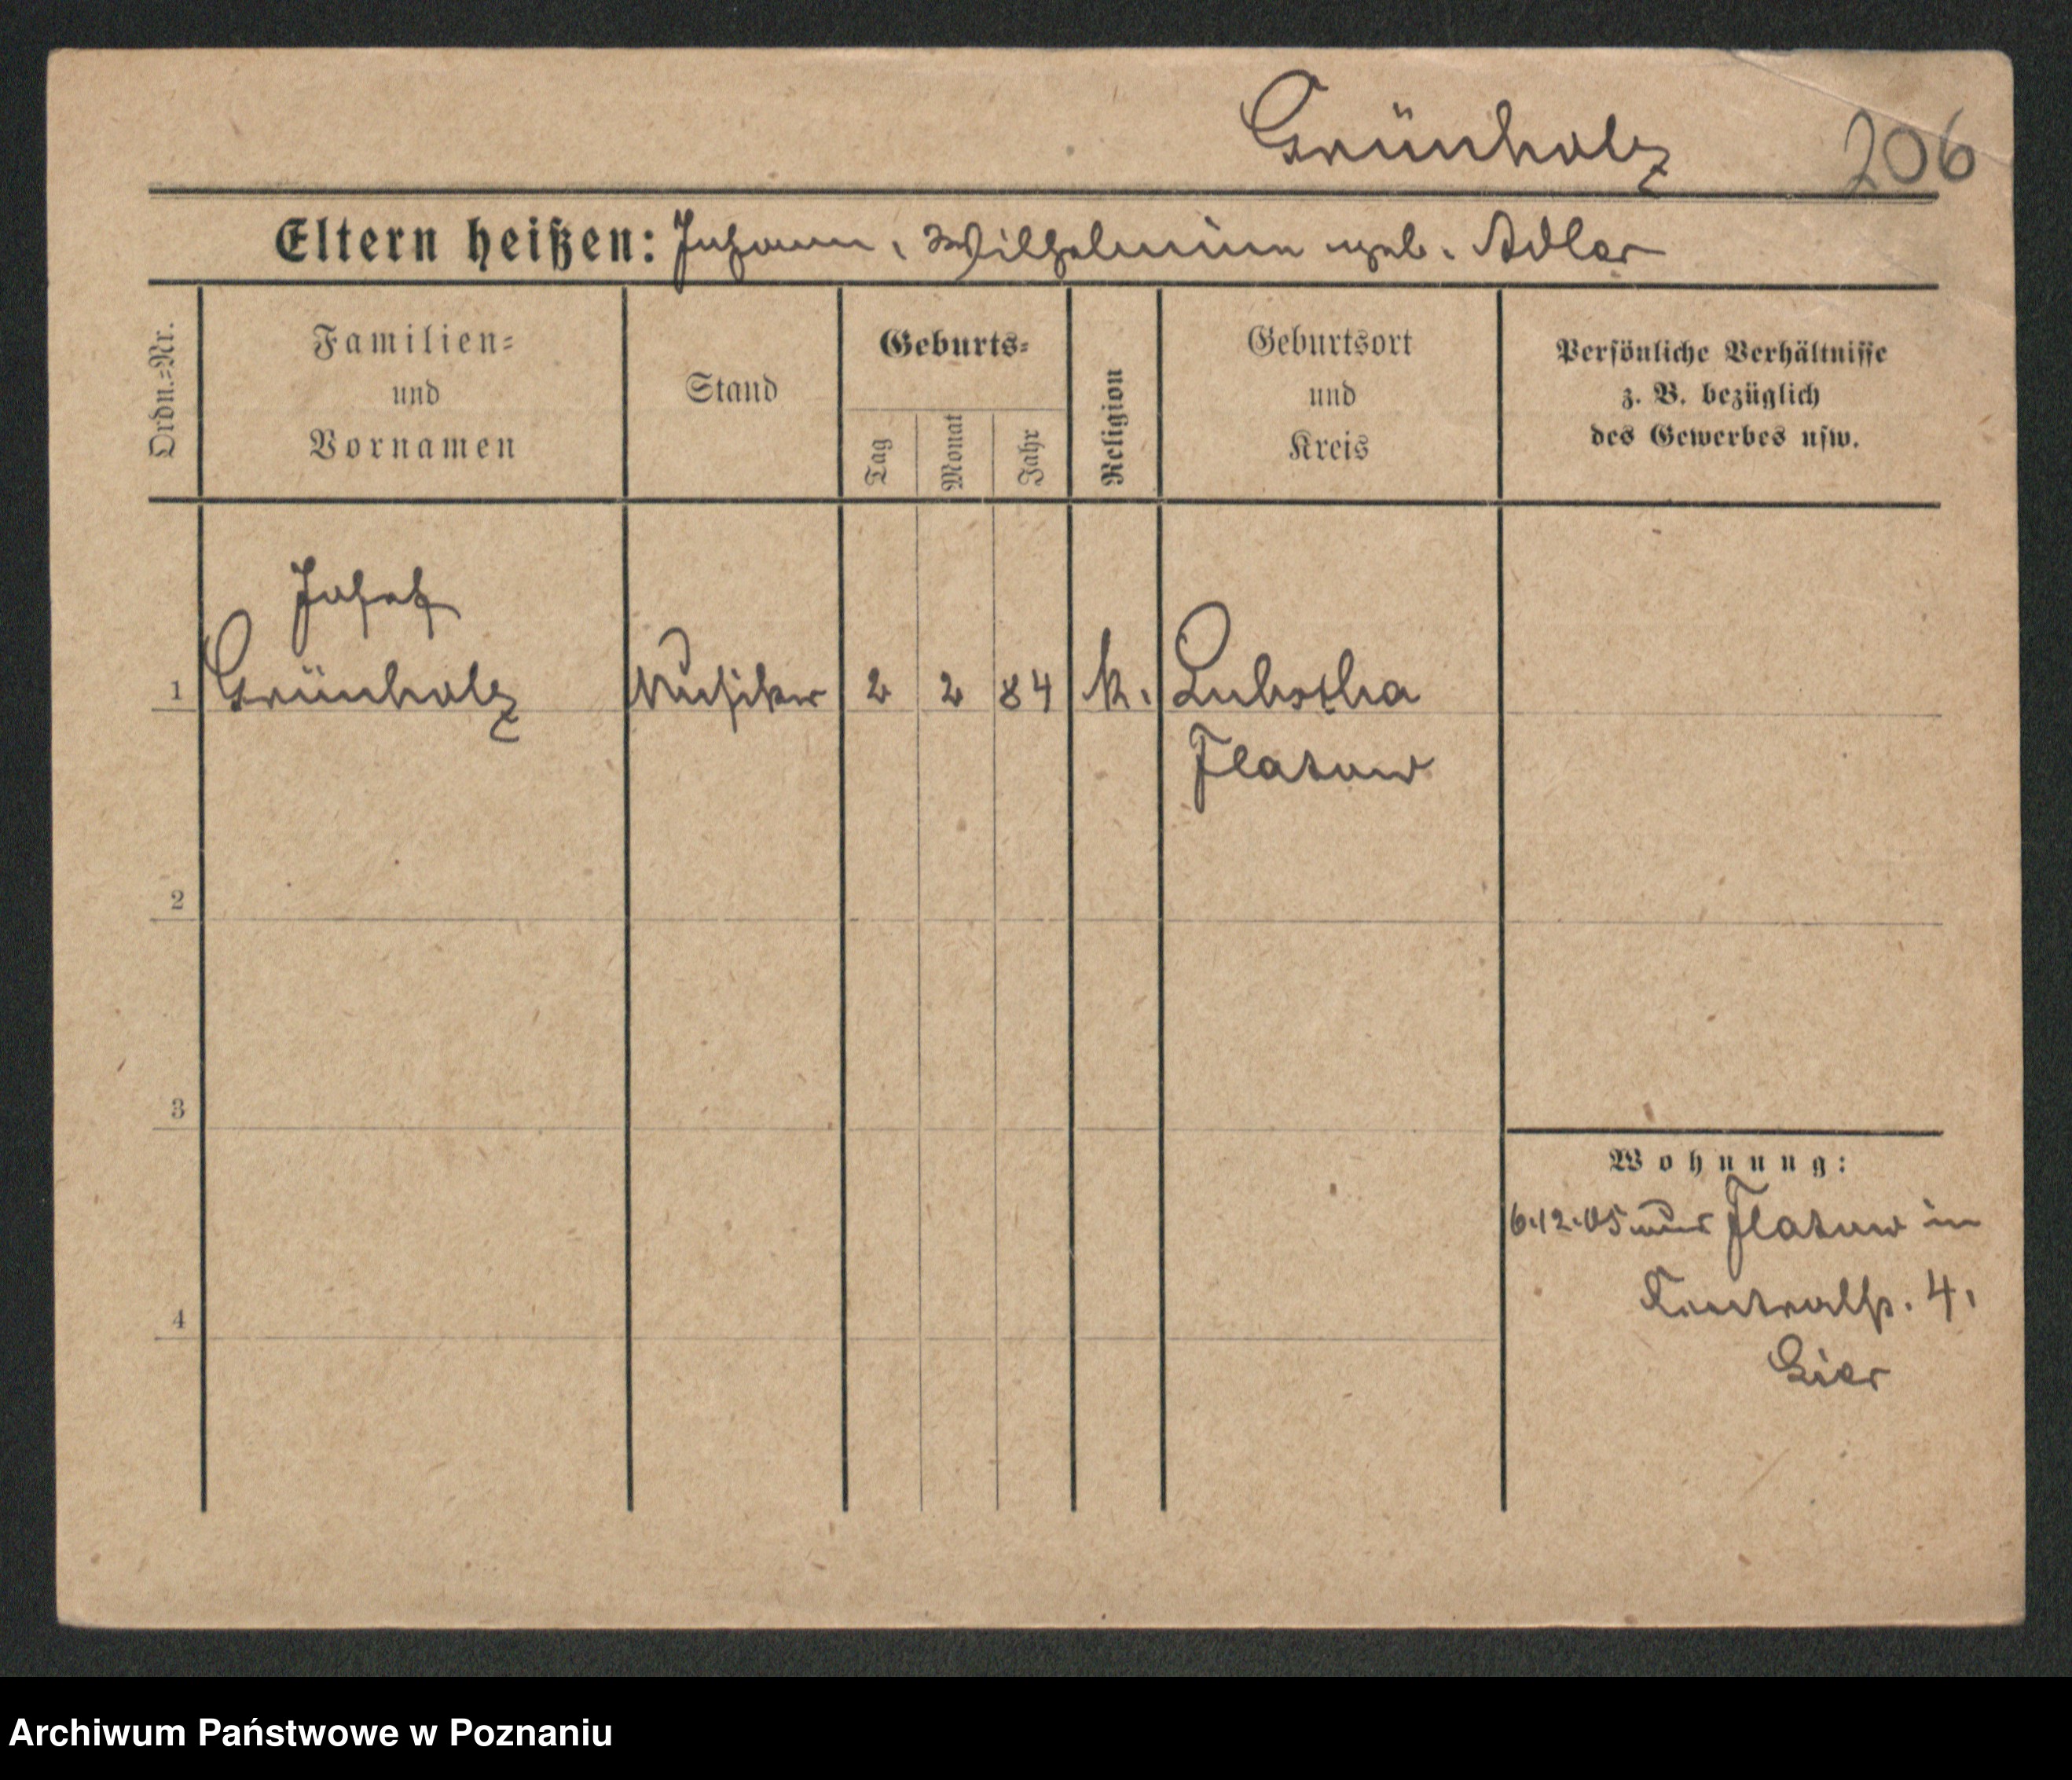 Grünholz 206
Eltern heißen: Johann, Wilhelmine geb. Adler
Ordn.=Nr.
Familien=
und
Vornamen
Stand
Geburts=
Tag
Monat
Jahr
Religion
Geburtsort
und
Kreis
Persönliche Verhältnisse
z. B. bezüglich
des Gewerbes usw.
Josef
1 Grünholz Musiker 2 2 84 k. Lubscha
Flatow
2
3
4
Wohnung:
6.12.05 aus Flatow in
4,
Archiwum Państwowe w Poznaniu